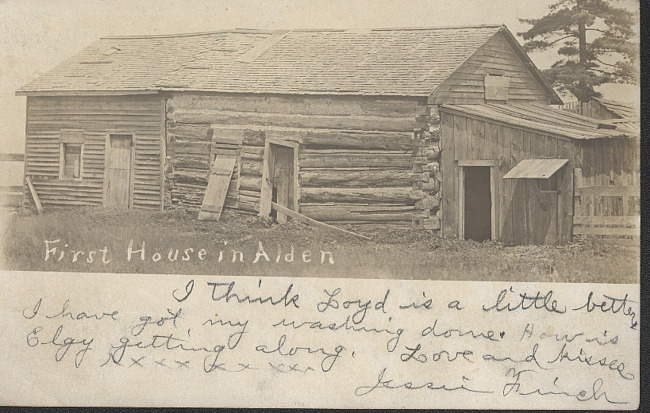 First House in Alden
I think Loyd is a little better,
I have got my washing done. How is
Elgy getting along. Love and kisses
x x x x x x x x
Jessie Finch